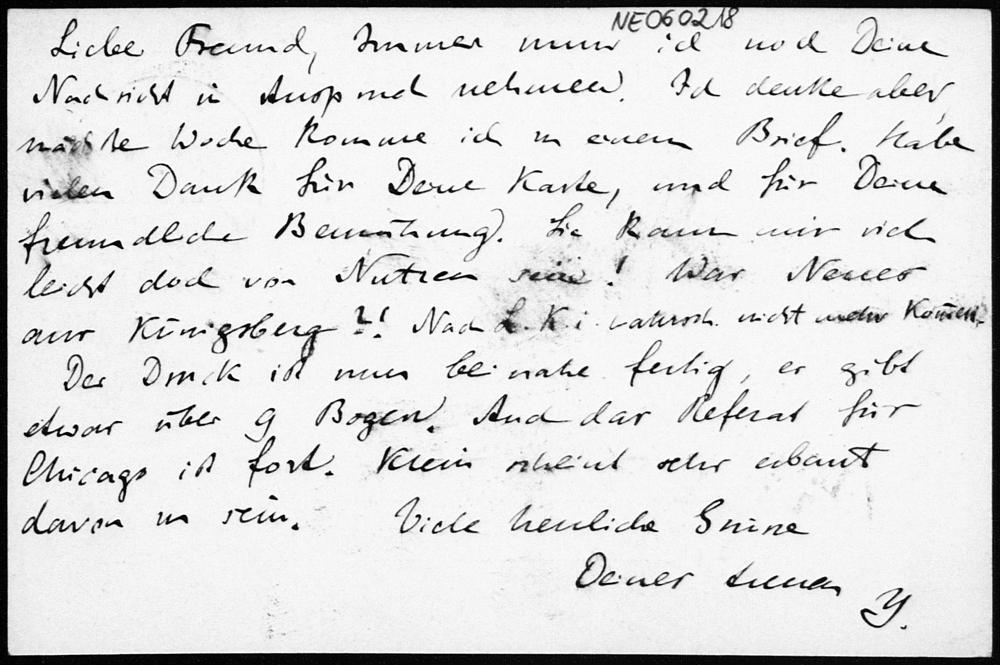 NE060218
Lieber Freund, Immer muss ich noch Deine
Nachsicht in Anspruch nehmen. Ich denke aber,
nächste Woche komme ich zu einem Brief. Habe
vielen Dank für Deine Karte, und für Deine
freundliche Bemühung. Sie kann mir viel
leicht doch von Nutzen sein! Was Neues
aus Königsberg?! Nach L. K. i. wahrsch. nicht mehr
Der Druck ist nun beinahe fertig, er gibt
etwas über 9 Bogen. Auch das Referat für
Chicago ist fort. Klein scheint sehr erbaut
davon zu sein. Viele herzliche Grüsse
Deines